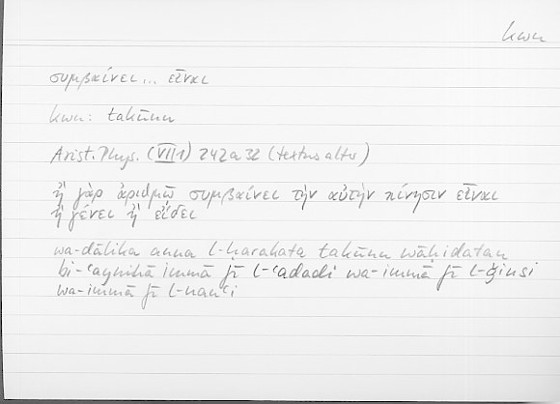 kwn
συμβαίνει... εἶναι
kwn: takūnu
Arist. Phys. (VII 1) 242a32 (textus alter)
ἢ γὰρ ἀριθμῷ συμβαίνει τὴν αὐτὴν κίνησιν εἶναι
ἢ γένει ἢ εἴδει
wa-ḏālika anna l-ḥarakata takūnu wāḥidatan
bi-ʿaynihā immā fī l-ʿadadi wa-immā fī l-ǧinsi
wa-immā fī l-nawʿi